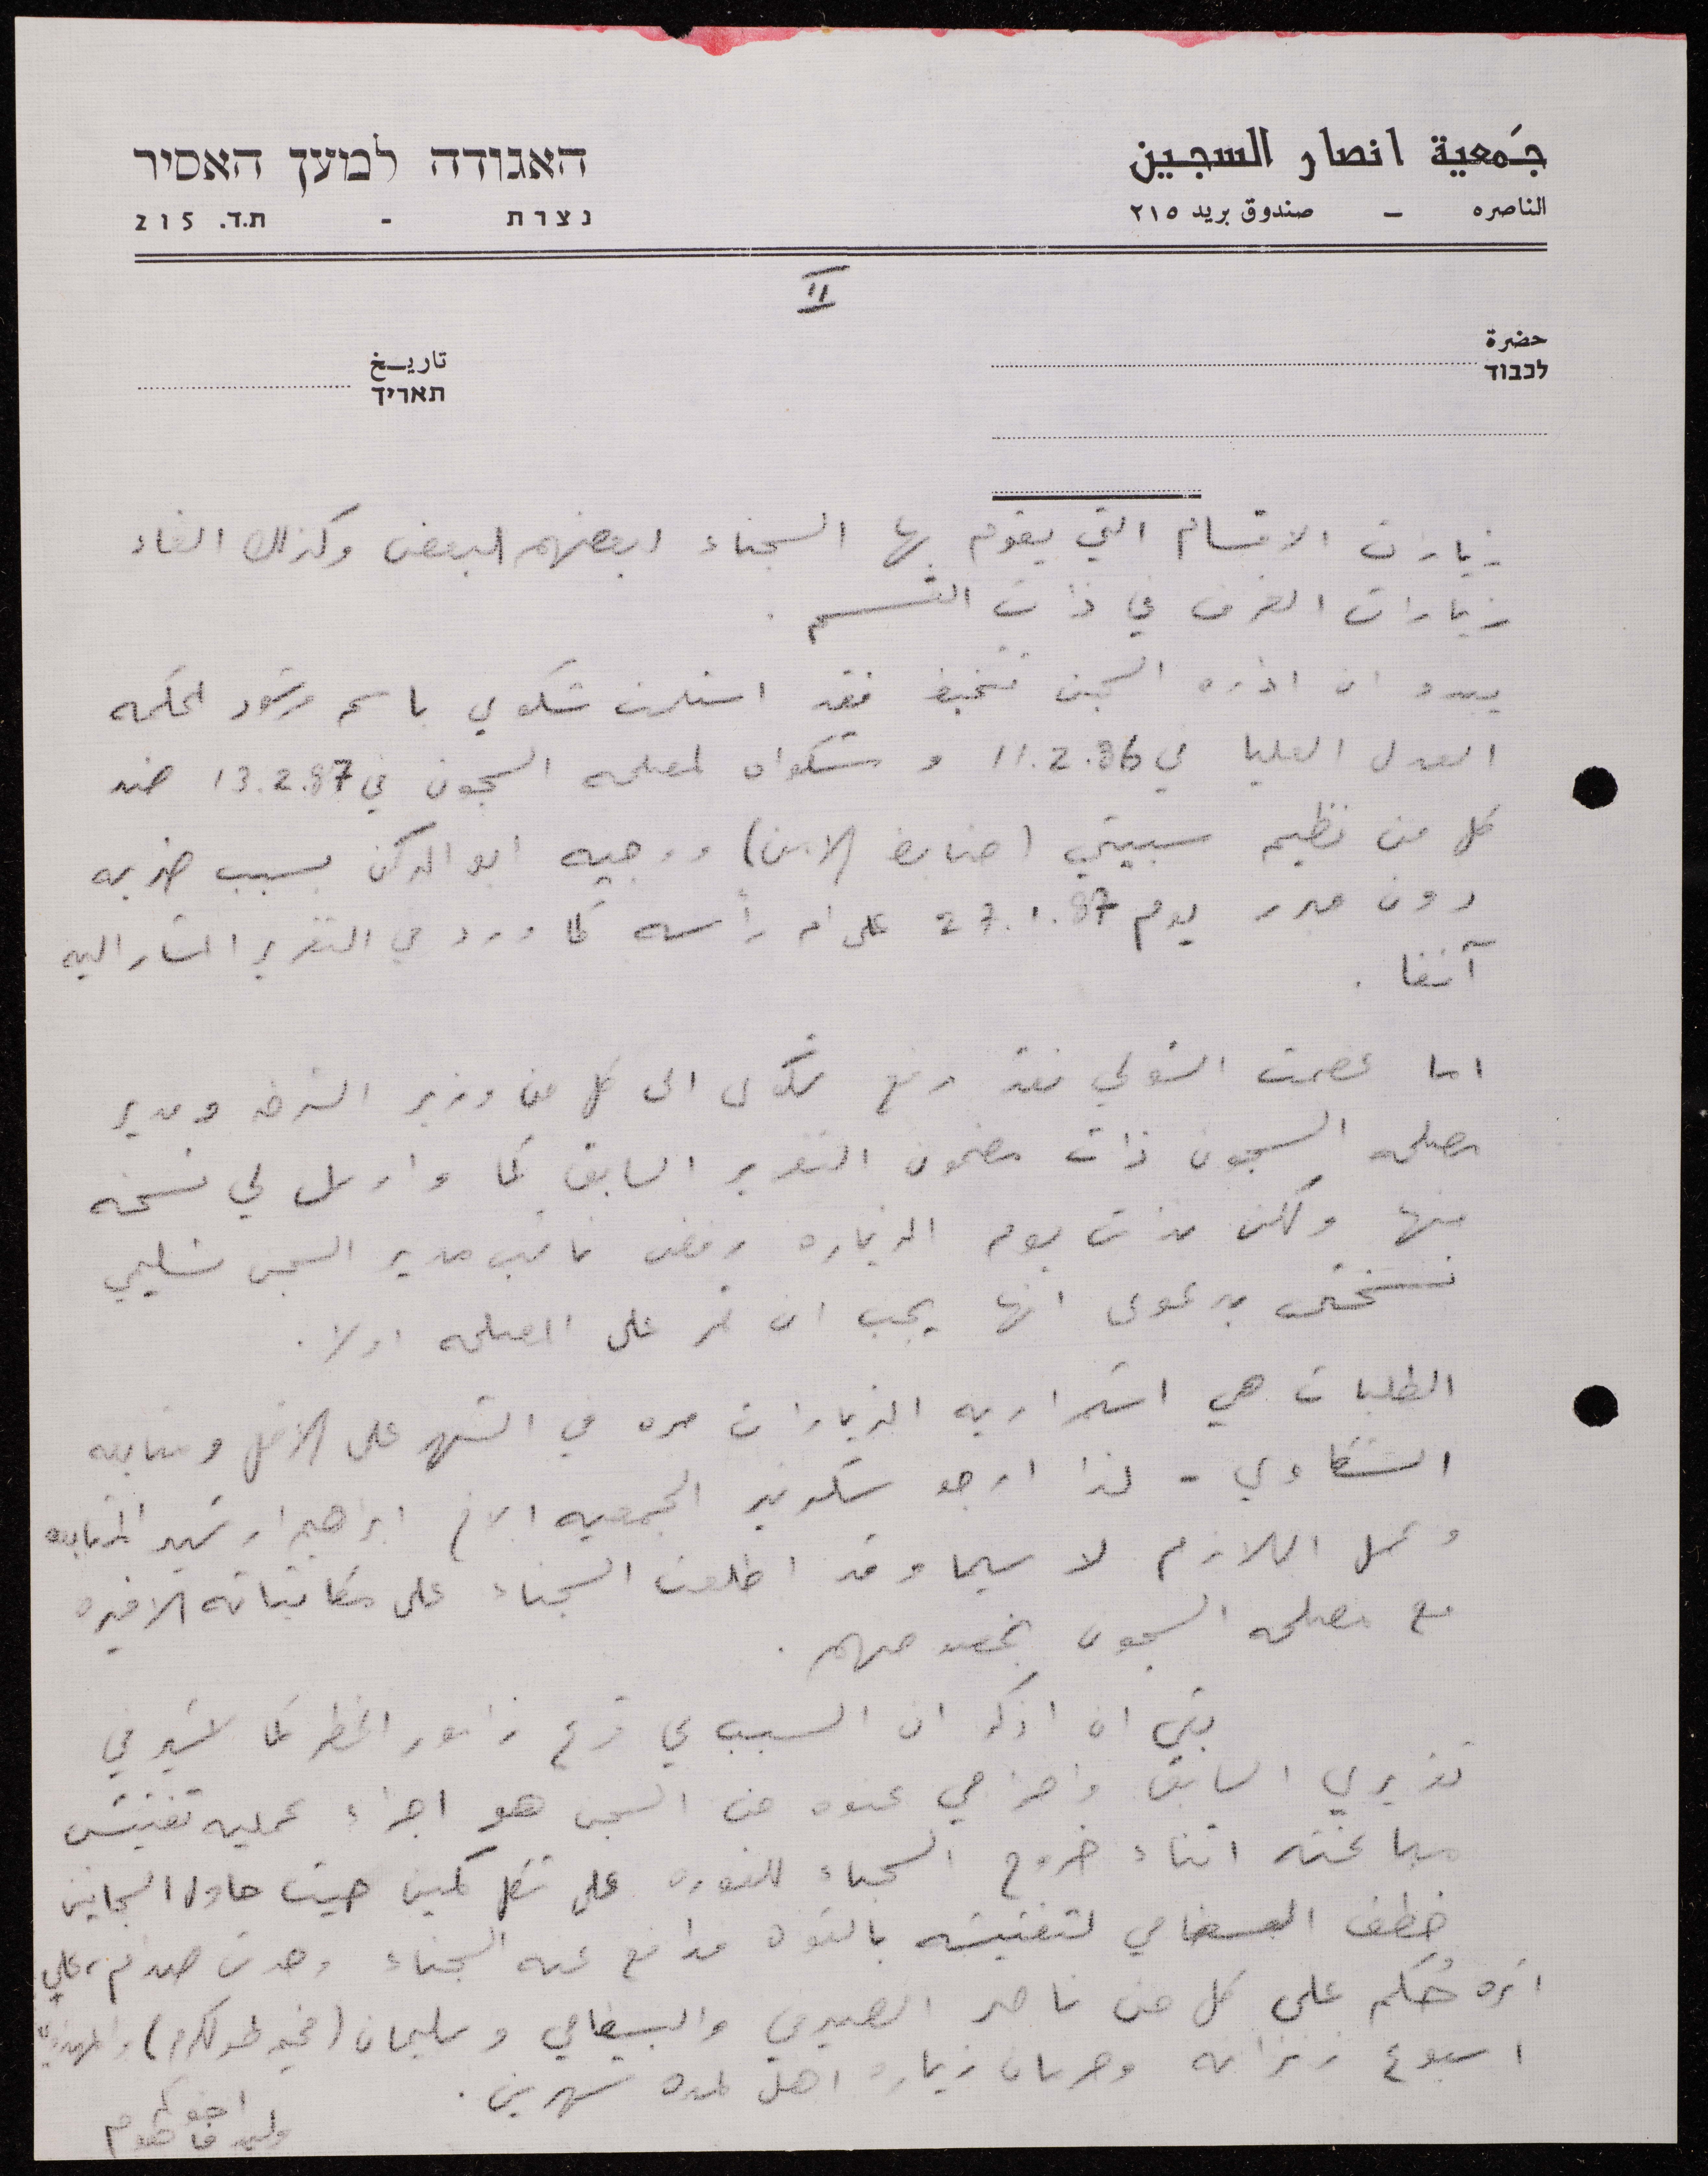 جمعية انصار السجين
الناصره - صندوق بريد ٢١٥
האגודה למען האסיר
נצרת - ת.ד. 215
II
حضرة
לכבוד
تاريخ
תאריך
زيارات الاقسام التي يقوم بها السجناء لبعضهم البعض وكذلك الغاء
زيارات الغرف في ذات القسم .
يبدو ان اداره السجن تتخبط فقد استلمت شكوى باسم لمحكمه
العدل العليا في 11.2.86 و شكواه لمصلحه السجون في 13.2.87 ضد
كل من نظيم سبيتي (ضابط الامن) ووجيه ابو الركن بسبب ضربه
دون مبرر يوم 27.1.87 على ام رأسه كما ورد في التقرير المشار اليه
آنفا .
اما عصمت الشولي فقد رفع شكوى الى كل من وزير الشرطه ومدير
مصلحه السجون ذات مضمون التقرير السابق كما وارسل لي نسخه
منها ولكن يوم الزياره رفض نائب مدير السجن تسليمي
نسختي بدعوى انها يجب ان تمر على المصلحه اولا .
الطلبات هي استمراريه الزيارات مره في الشهر على الاقل ومتابعه
الشكاوي - لذا ارجو سكرتير الجمعيه الاخ ابراهيم المتابعه
وعمل اللازم لا سيما وقد اطلعت السجناء على مكاتباته الاخيره
مع مصلحه السجون بخصوصهم .
بقي ان اذكر ان السبب في قرع زامور الخطر كما اشير في
تقريري السابق واخراجي عنوه من السجن هو اجراء عمليه تفتيش
مباغته اثناء خروج السجناء للفوره على شكل كمين حيث حاول السجانين
خطف لتفتيشه بالقوه فدافع عنه السجناء وحدث صدام، على
اثره حُكم على كل من ناصر و وسليمان (مخيم طولكرم)
اسبوع زنزانه وحرمان زياره اهل لمده شهرين .
اخوكم
وليد فاهوم